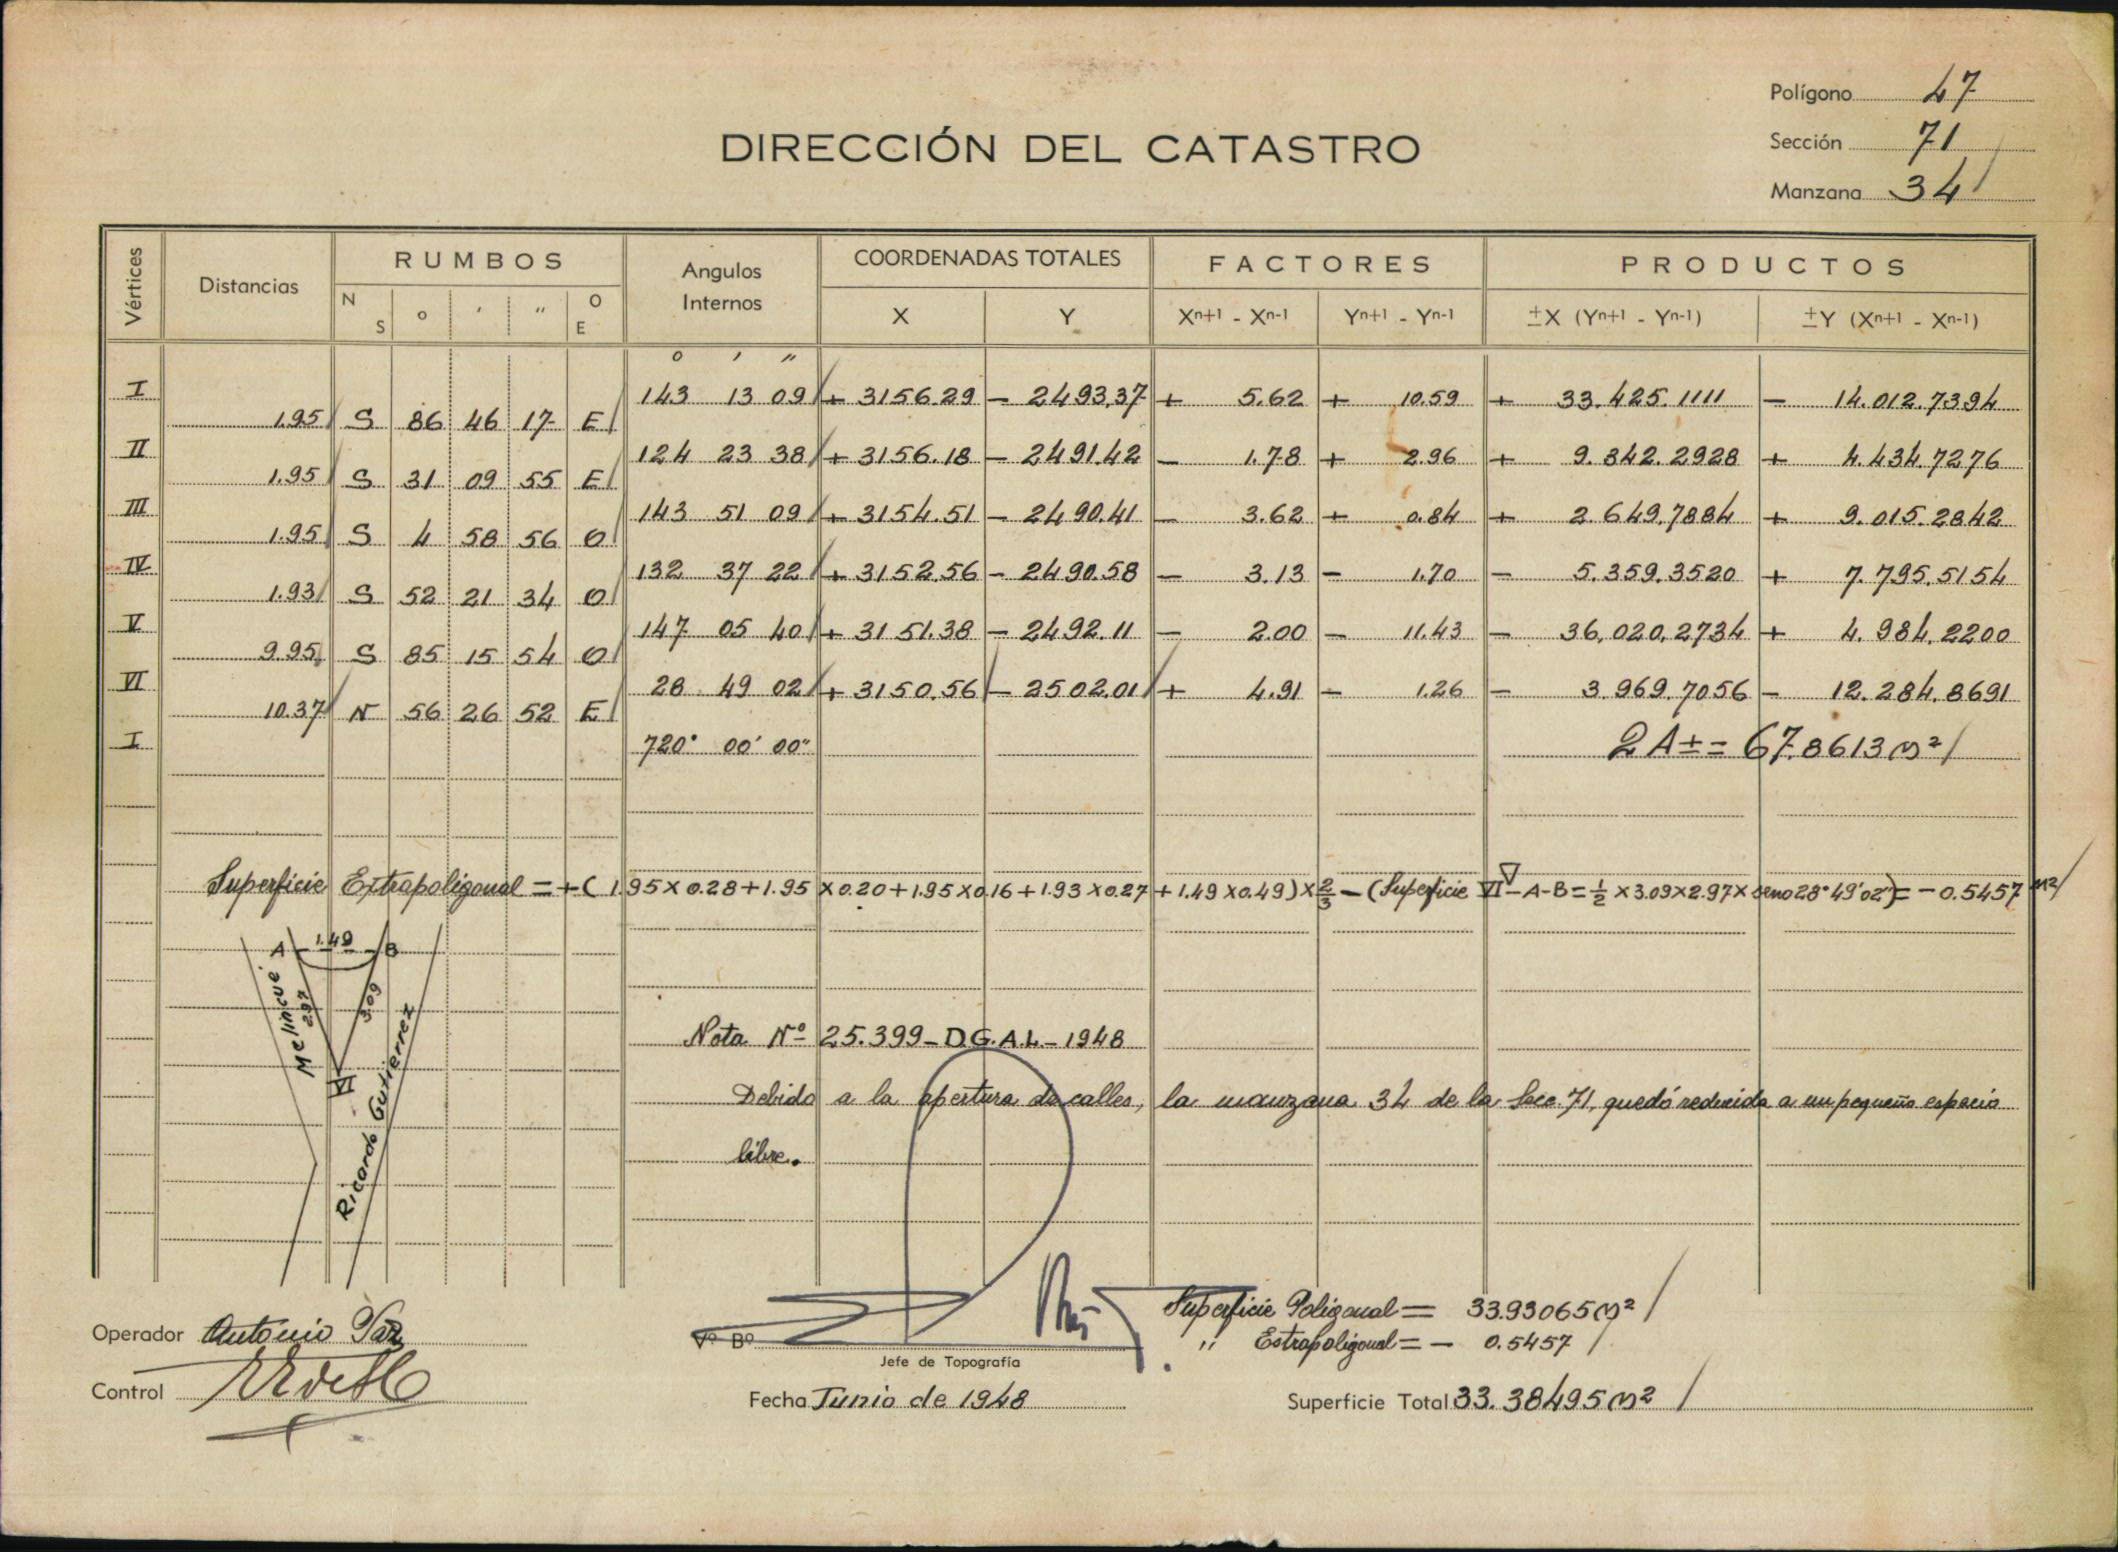 Polígono 47
DIRECCIÓN DEL CATASTRO
Sección 71
Manzana 34
Vértices Distancias RUMBOS Angulos Internos COORDENADAS TOTALES FACTORES PRODUCTOS
N S o ' " O E X Y Xn+1 - Xn-1 Yn+1 - Yn-1 ±X (Yn+1 - Yn-1) ±Y (Xn+1 - Xn-1)
o ' "
I 143 13 09 + 3156.29 - 2493.37 + 5.62 + 10.59 + 33.425.1111 - 14.012.7394
1.95 S 86 46 17 E
II 124 23 38 + 3156.18 - 2491.42 - 1.78 + 2.96 + 9.342.2928 + 4.434.7276
1.95 S 31 09 55 E
III 143 51 09 + 3154.51 - 2490.41 - 3.62 + 0.84 + 2.649.7884 + 9.015.2842
1.95 S 4 58 56 O
IV 132 37 22 + 3152.56 - 2490.58 - 3.13 - 1.70 - 5.359.3520 + 7.795.5154
1.93 S 52 21 34 O
V 147 05 40 + 3151.38 - 2492.11 - 2.00 - 11.43 - 36.020.2734 + 4.984.2200
9.95 S 85 15 54 O
VI 28 49 02 + 3150.56 - 2502.01 + 4.91 - 1.26 - 3.969.7056 - 12.284.8691
10.37 N 56 26 52 E
I 720° 00' 00" 2A± = 67.8613 m²
Superficie Extrapoligonal = + ( 1.95 x 0.28 + 1.95 x 0.20 + 1.95 x 0.16 + 1.93 x 0.27 + 1.49 x 0.49 ) x 2/3 - (Superficie ▽ VI - A - B = 1/2 x 3.09 x 2.97 x seno 28° 49' 02") = - 0.5457 m²
A 1.49 B
Melincué 2.97 3.09
VI
Ricardo Gutierrez
Nota Nº 25.399 - D.G.A.L - 1948
Debido a la apertura de calles, la manzana 34 de la Secc. 71, quedó reducida a un pequeño espacio
libre.
Superficie Poligonal = 33.93065 m²
" Extrapoligonal = - 0.5457
Operador Antonio Paz
Vº Bº
Jefe de Topografía
Control
Fecha Junio de 1948
Superficie Total 33.38495 m²